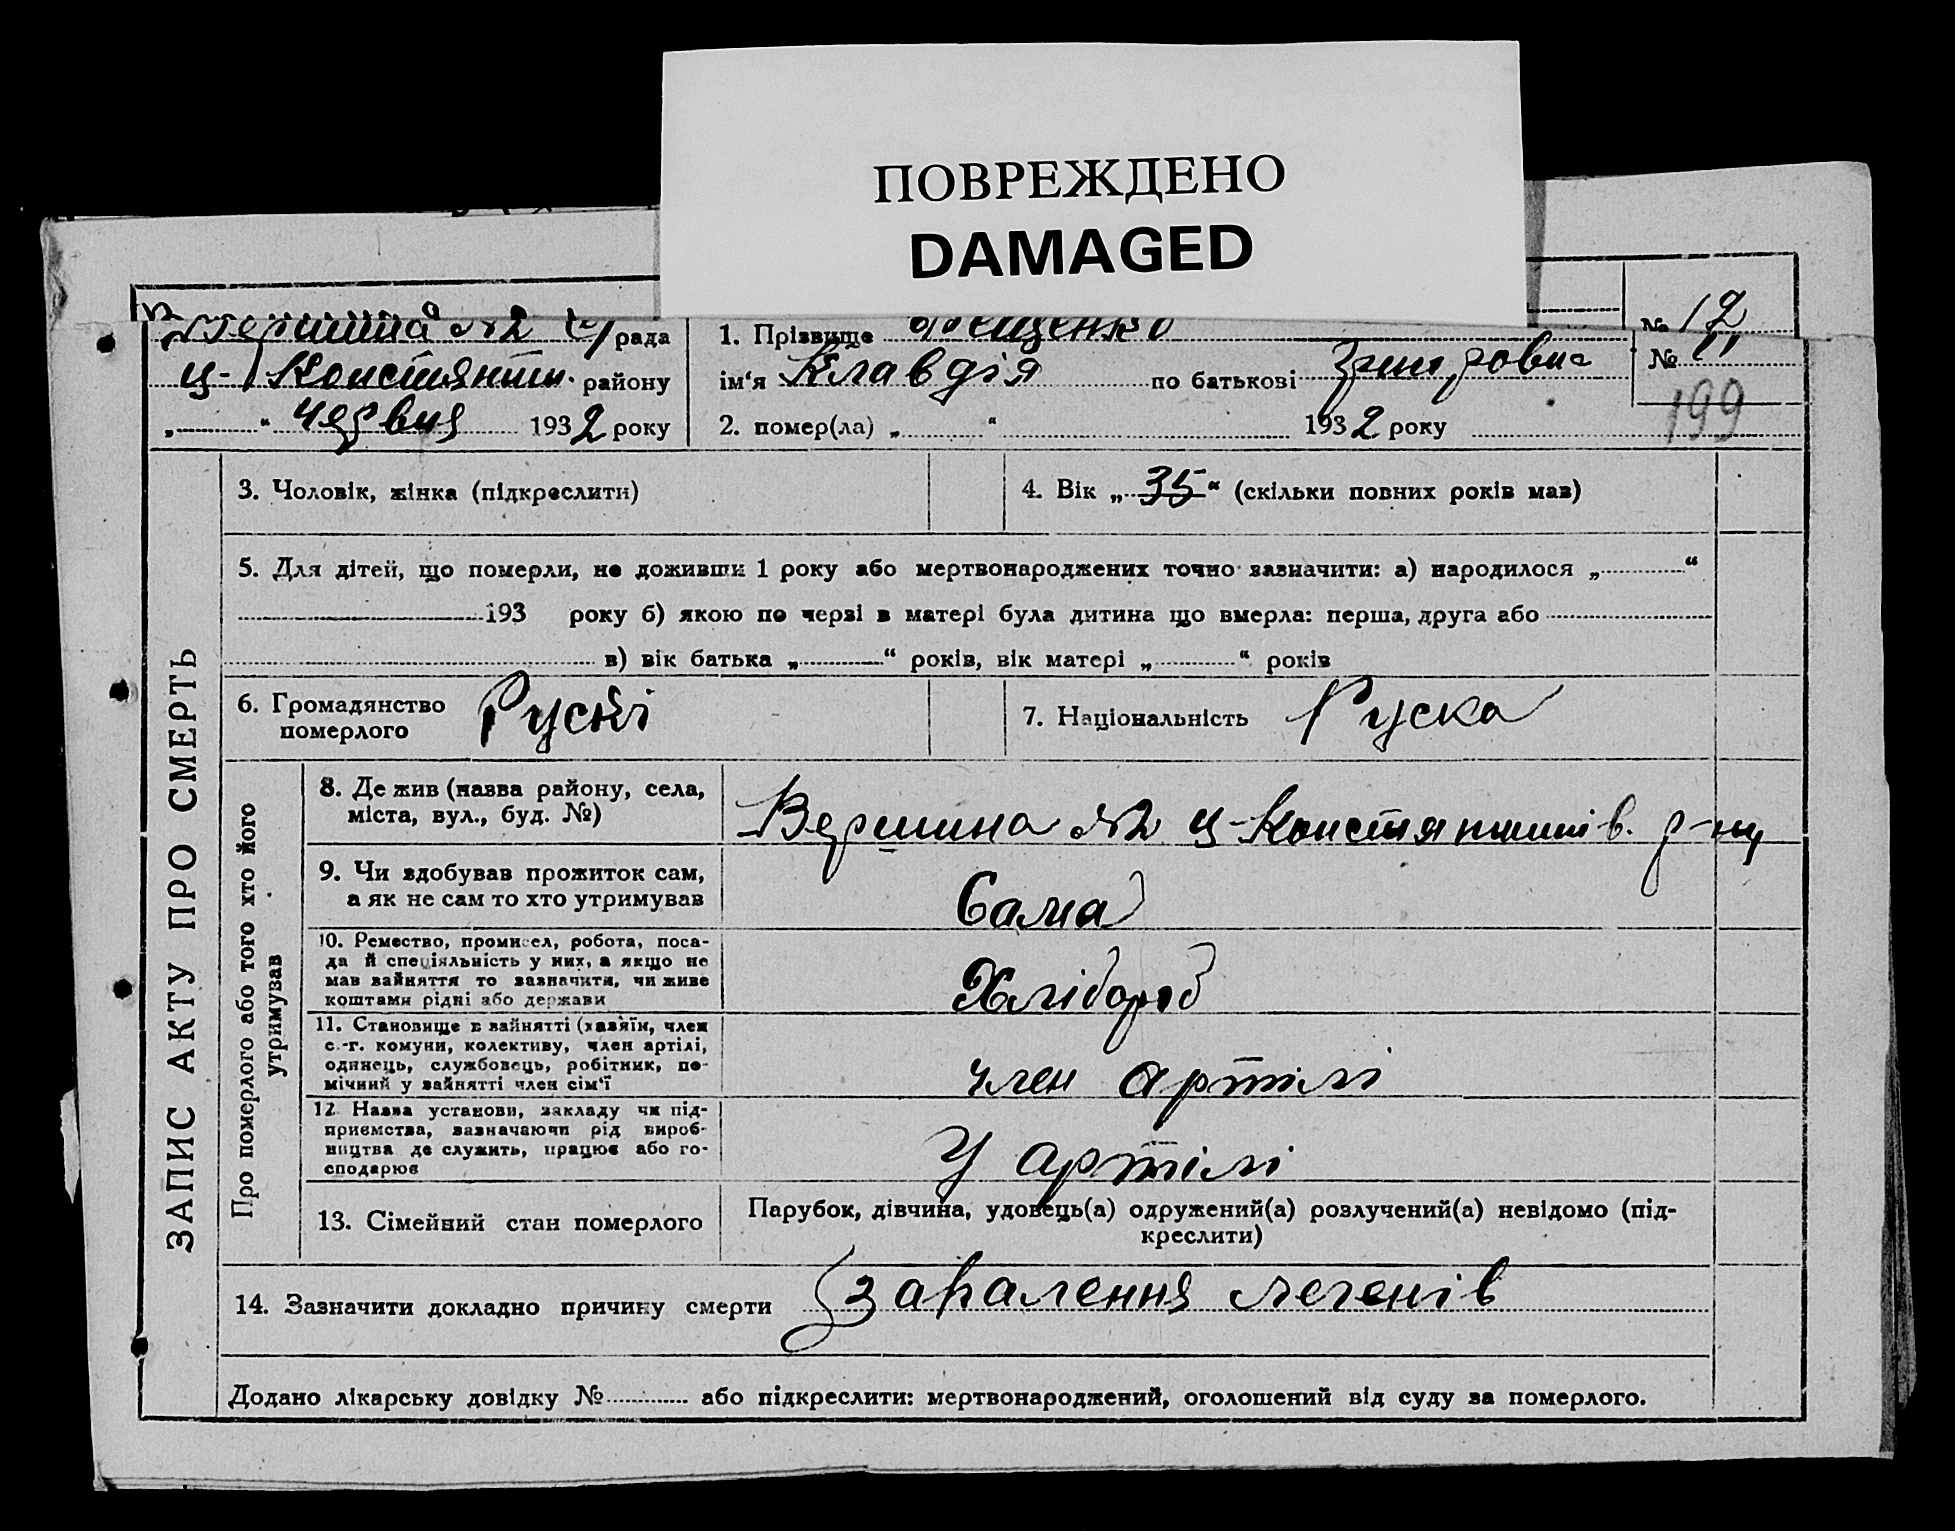 ПОВРЕЖДЕНО
DAMAGED
№ 12
Вершина №2 рада
ц-Констянтин. району
„ “ червня 1932 року
1. Прізвище
ім‘я Клавдія по батькові
2. помер(ла) „ “ 1932 року
№ 11
199
ЗАПИС АКТУ ПРО СМЕРТЬ
3. Чоловік, жінка (підкреслити)
4. Вік „35“ (скільки повних років мав)
5. Для дітей, що померли, не доживши 1 року або мертвонароджених точно зазначити: а) народилося „ “
193 року б) якою по черзі в матері була дитина що вмерла: перша, друга або
в) вік батька „ “ років, вік матері „ “ років
6. Громадянство
померлого
Рускі
7. Національність Руска
Про померлого або того хто його
утримував
8. Де жив (назва району, села,
міста, вул., буд. №)
Вершина №2 ц-Констянтинів. р-ну
9. Чи здобував прожиток сам,
а як не сам то хто утримував
Сама
10. Ремество, промисел, робота, поса-
да й спеціяльність у них, а якщо не
мав зайняття то зазначити, чи живе
коштами рідні або держави
Хлібороб
11. Становище в зайнятті (хазяїн, член
с.-г. комуни, колективу, член артілі,
одинець, службовець, робітник, по-
мічний у зайнятті член сім‘ї
член артілі
12 Назва установи, закладу чи під-
приємства, зазначаючи рід вироб-
ництва де служить, працює або го-
сподарює
У артілі
13. Сімейний стан померлого
Парубок, дівчина, удовець(а) одружений(а) розлучений(а) невідомо (під-
креслити)
14. Зазначити докладно причину смерти запалення легенів
Додано лікарську довідку № або підкреслити: мертвонароджений, оголошений від суду за померлого.